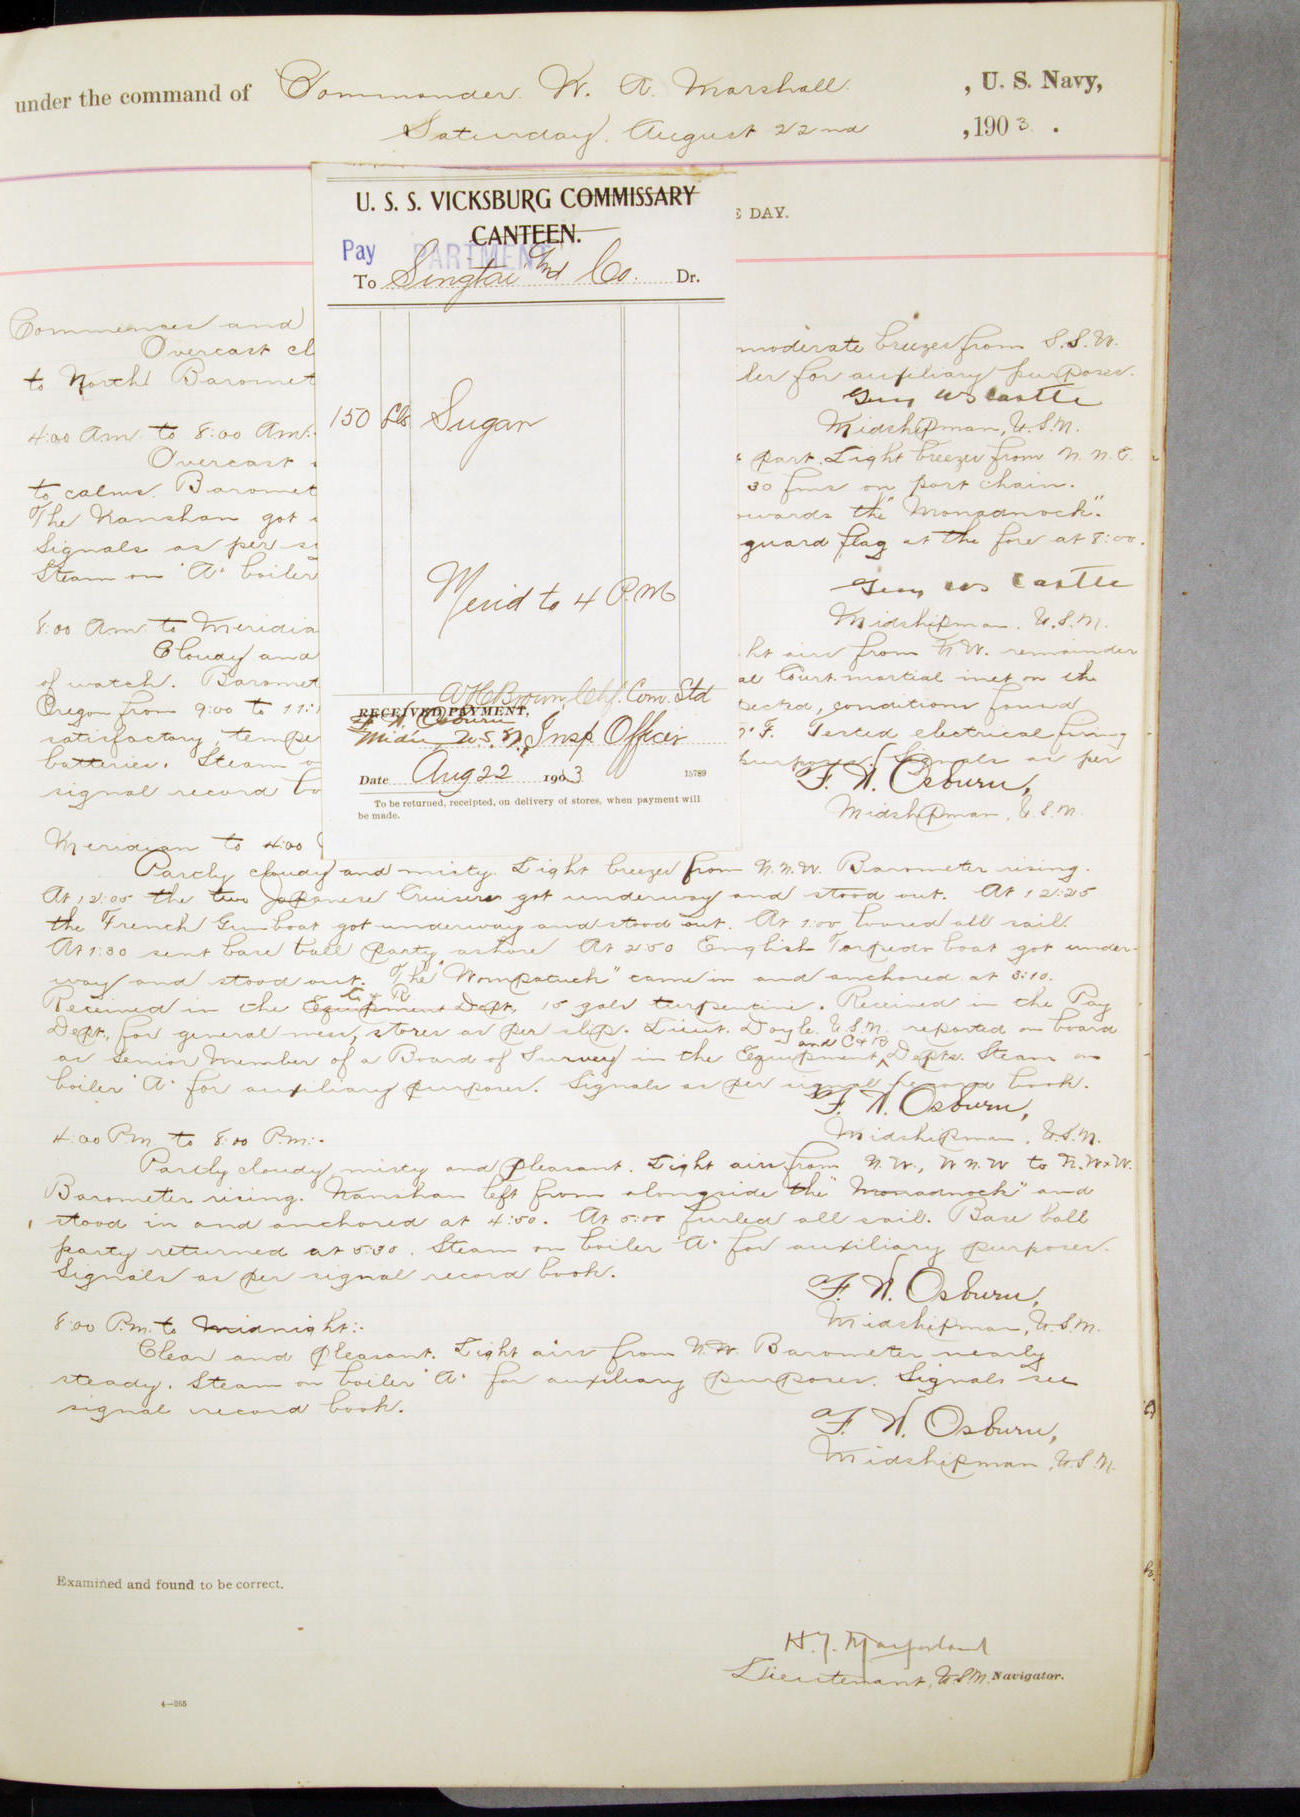 under the command of Commander W. A. Marshall, U. S. Navy,
Saturday, August 22nd, 1903.
E DAY.
U. S. S. VICKSBURG COMMISSARY
CANTEEN.
Pay PARTMENT
To Singtai And Co. Dr.
150 Lbs Sugar
Merid to 4 P.M
W H Brown, Chf. Com. Std
RECEIVED PAYMENT,
F. N. Osburn
Mid'n U.S.N., Insp Officer
Date Aug 22 1903
15789
To be returned, receipted, on delivery of stores, when payment will
be made.
Commences and
Overcast cl moderate breezes from S.S.W.
to North. Baromet ler for auxiliary purposes.
Guy W S Castle
Midshipman, U.S.N.
4:00 Am. to 8:00 Am:-
Overcast part. Light breezes from N.N.E.
to calms. Baromet 30 fms on port chain.
The Nanshan got owards the "Monadnock".
Signals as per si guard flag at the fore at 8:00.
Steam on "A" boiler
Guy W S Castle
Midshipman, U.S.N.
8:00 Am. to Meridia
Cloudy and ht airs from N.W. remainder
of watch. Baromet al Court martial met on the
Oregon from 9:00 to 11: pected, conditions found
satisfactory, tempe °F. Tested electrical firing
batteries. Steam o purposes. Signals as per
signal record bo
F. N. Osburn,
Midshipman, U.S.N.
Meridian to 4:00
Partly cloudy and misty. Light breezes from N.N.W. Barometer rising.
At 12:05 the two Japanese Cruisers got underway and stood out. At 12:25
the French Gunboat got underway and stood out. At 1:00 loosed all sail.
At 1:30 sent base ball party ashore. At 2:50 English Torpedo boat got under-
way and stood out. The "Wompatuck" came in and anchored at 3:10.
C & R
Received in the Equipment Dept, 15 gals turpentine. Received in the Pay
Dept., for general mess, stores as per slip. Lieut. Doyle, U.S.N. reported on board
and C & R
as Senior Member of a Board of Survey in the Equipment ^ Depts. Steam on
boiler "A" for auxiliary purposes. Signals as per signal record book.
F. N. Osburn,
Midshipman, U.S.N.
4:00 P.M. to 8:00 P.M.:-
Partly cloudy, misty and pleasant. Light airs from N.W., W.N.W to N.W.xW.
Barometer rising. Nanshan left from alongside the "Monadnock" and
stood in and anchored at 4:50. At 5:00 furled all sail. Base ball
party returned at 5:30. Steam on boiler "A" for auxiliary purposes.
Signals as per signal record book.
F. N. Osburn,
Midshipman, U.S.N.
8:00 P.M. to Midnight:-
Clear and pleasant. Light airs from N.W. Barometer nearly
steady. Steam on boiler "A" for auxiliary purposes. Signals see
signal record book.
F. N. Osburn,
Midshipman, U.S.N.
Examined and found to be correct.
Lieutenant, U.S.N. Navigator.
4—265